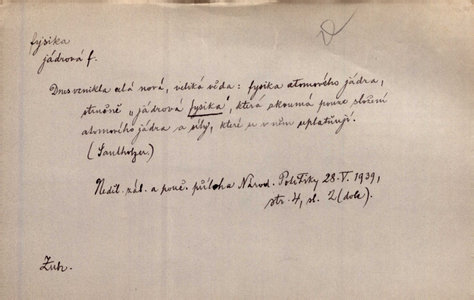 fysika
jádrová f.
Dnes vznikla celá nová, veliká věda: fysika atomového jádra,
stručně „jádrová fysika", která zkoumá pouze složení
atomového jádra a síly, které se v něm uplatňují.
(Santholzer)
Neděl. záb. a pouč. příloha Národ. Politiky 28-V. 1939,
str. 4, sl. 2 (dole).
Zuh.